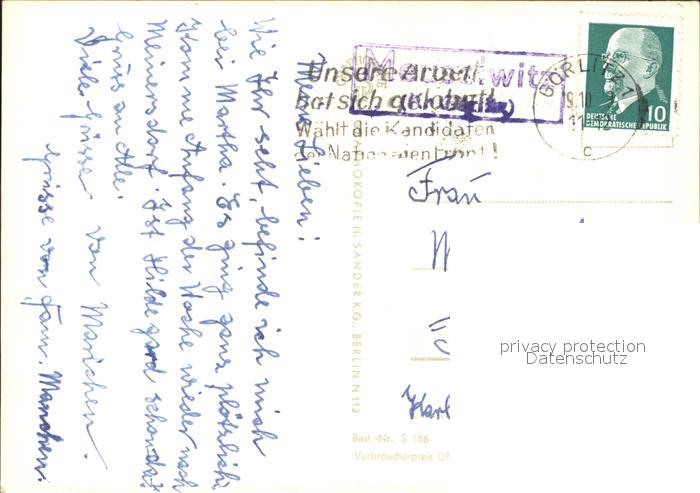 Meine Lieben!
Wie Ihr seht, befinde ich mich
bei Martha. Es ging ganz plötzlich
Komme Anfang der Woche wieder nach
Meinersdorf. Ist Hildegard schon da?
Gruss an Alle.
Viele Grüsse von Manchen.
Grüsse von Fam. Manchen.
Unsere Arbeit
hat sich gelohnt!
Wählt die Kandidaten
der Nationalen Front!
GÖRLITZ 1
19.10
11
c
10
DEUTSCHE
DEMOKRATISCHE REPUBLIK
Frau
Karl
KOPIE H. SANDER K.G., BERLIN N 113
Best.-Nr. S 188
Verbraucherpreis DM
privacy protection
Datenschutz